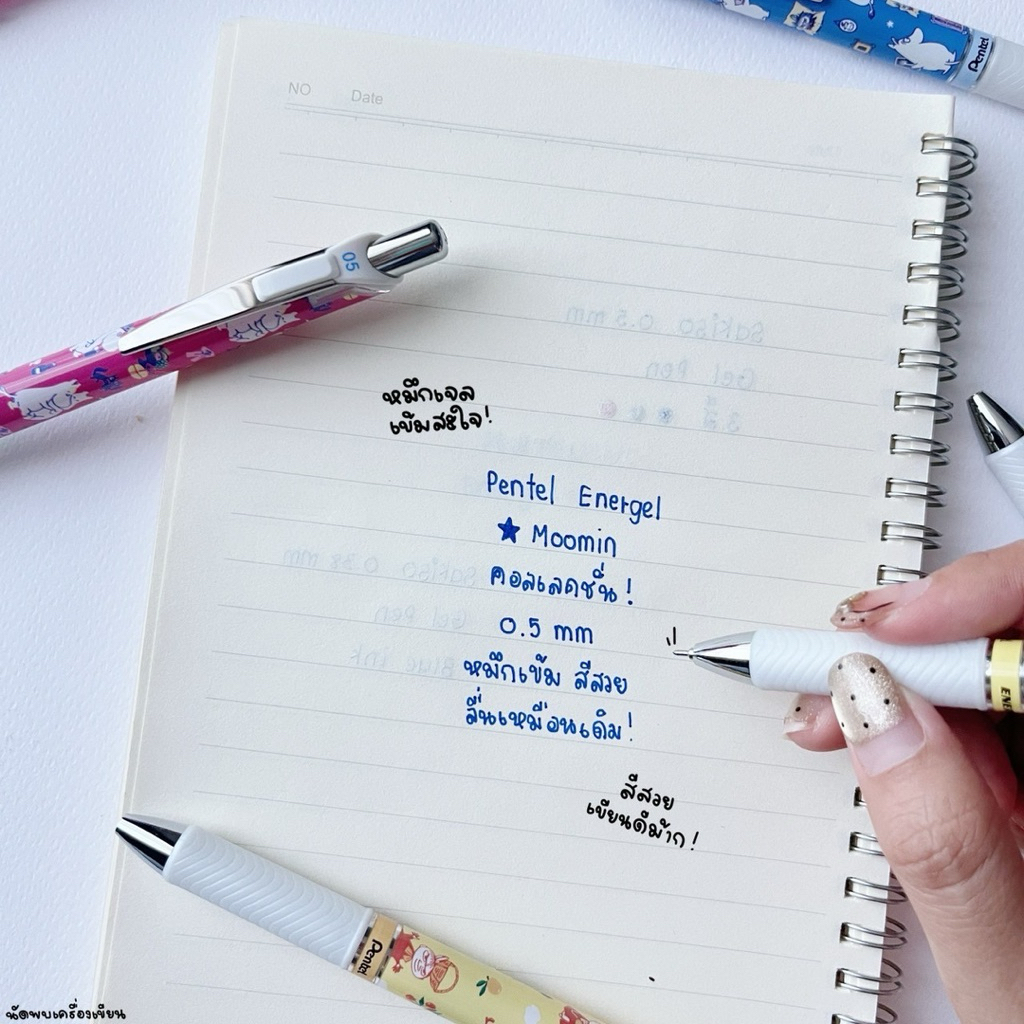 NO Date
Pentel
05
Sakiso 0.5 mm
Gel Pen
3 สี
หมึกเจล
เข้มสะใจ!
Pentel Energel
★ Moomin
คอลเลคชั่น!
Sakiso 0.38 mm
0.5 mm
Gel Pen
หมึกเข้ม สีสวย
Blue ink
ลื่นเหมือนเดิม!
สีสวย
เขียนดีม้าก!
Pentel
นัดพบเครื่องเขียน